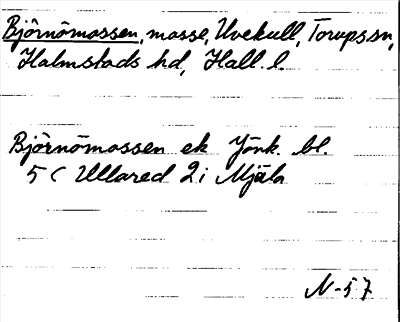 Björnömossen, mosse, Uvekull, Torups sn,
Halmstads hd, Hall. l.
Björnömossen ek Jönk. bl.
5 C Ullared 2 i Mjäla
N-57